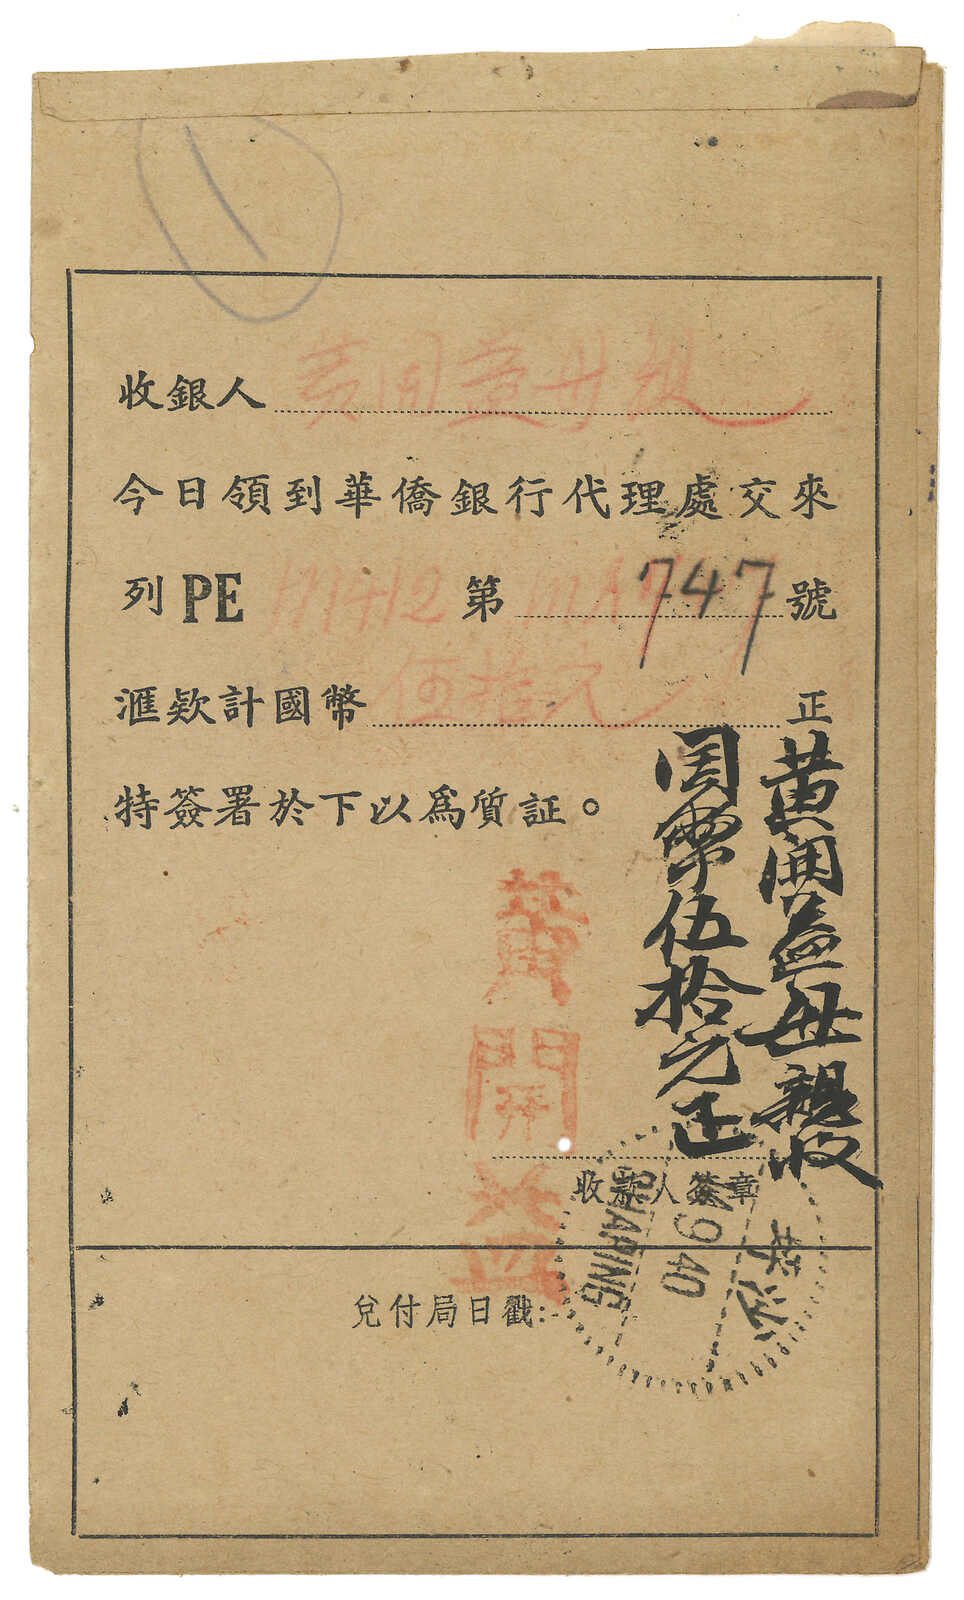 收銀人 黃開益母親
今日領到華僑銀行代理處交來
列PE 第 747 號
滙欵計國幣 伍拾元 正
特簽署於下以爲質証。
黃開益母親收
國幣伍拾元正
黃開益
收款人簽章
兌付局日戳:
1940
SHAPING
沙